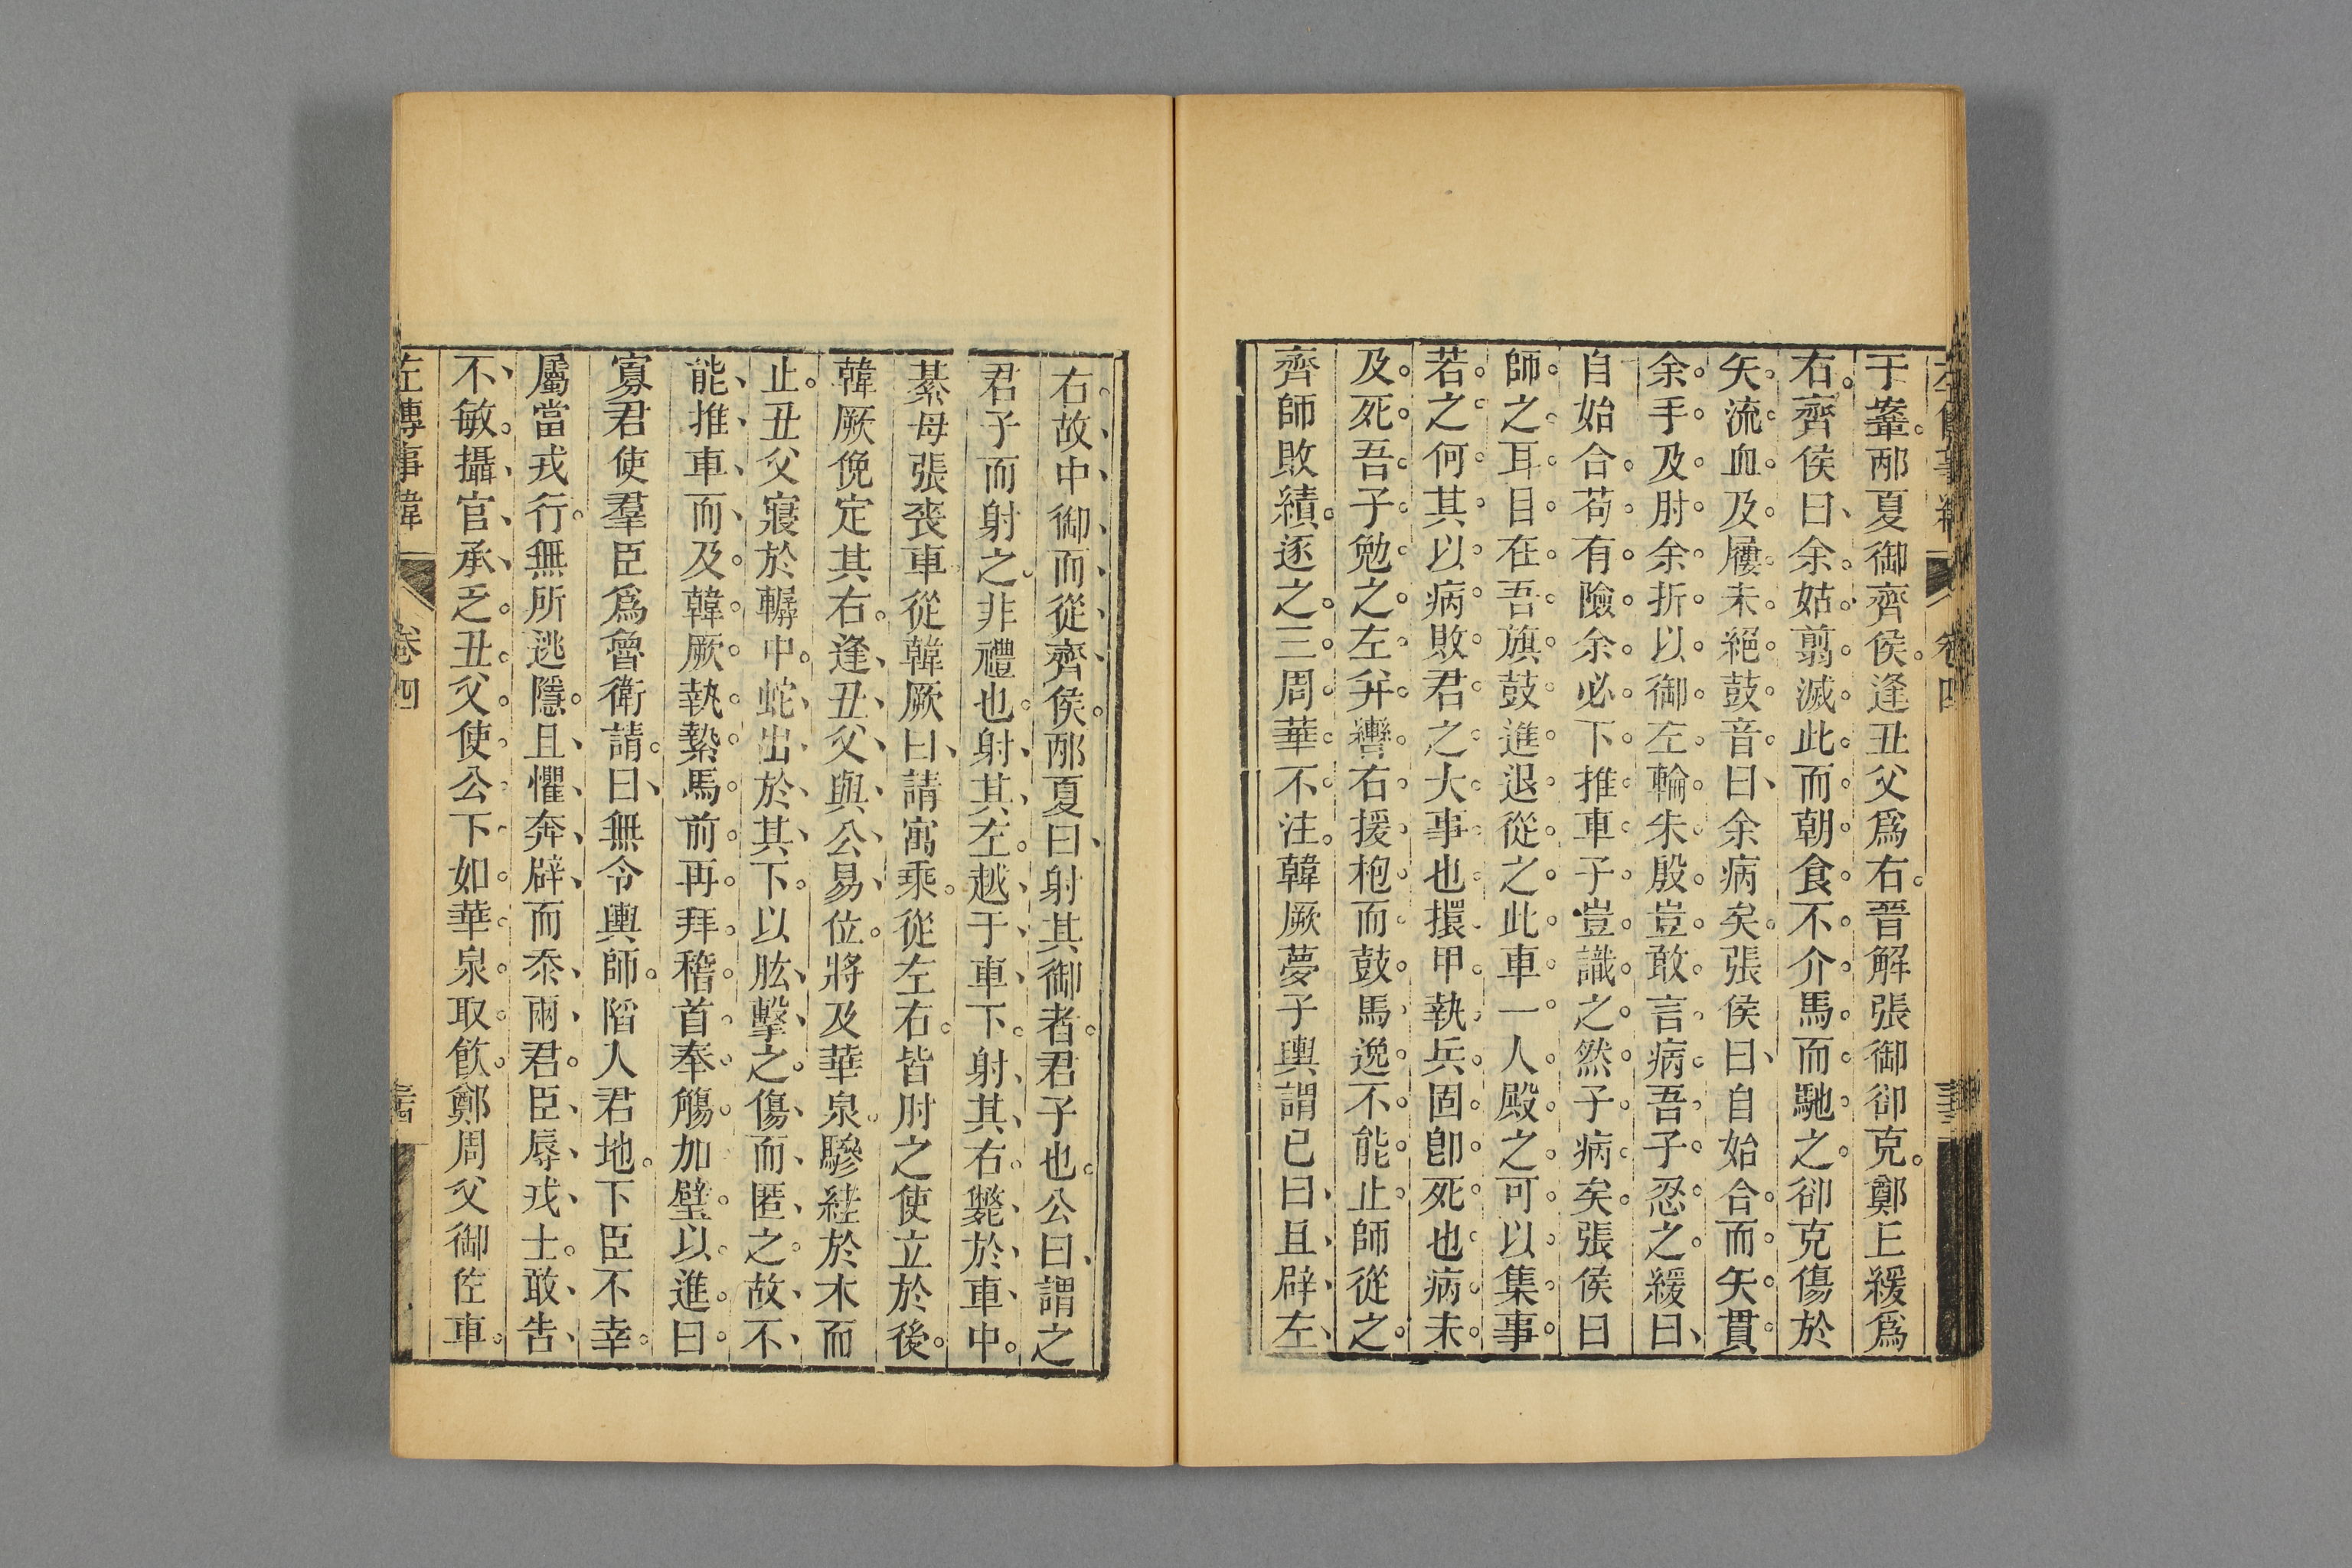 于鞌邴夏御齊侯逢丑父爲右晉解張御郤克鄭丘緩爲
右齊侯曰余姑翦滅此而朝食不介馬而馳之郤克傷於
矢流血及屨未絕鼓音曰余病矣張侯曰自始合而矢貫
余手及肘余折以御左輪朱殷豈敢言病吾子忍之緩曰
自始合苟有險余必下推車子豈識之然子病矣張侯曰
師之耳目在吾旗鼓進退從之此車一人殿之可以集事
若之何其以病敗君之大事也擐甲執兵固卽死也病未
及死吾子勉之左并轡右援枹而鼓馬逸不能止師從之
齊師敗績逐之三周華不注韓厥夢子輿謂已曰且辟左
右故中御而從齊侯邴夏曰射其御者君子也公曰謂之
君子而射之非禮也射其左越于車下射其右斃於車中
綦毋張喪車從韓厥曰請寓乘從左右皆肘之使立於後
韓厥俛定其右逢丑父與公易位將及華泉驂絓於木而
止丑父寢於轏中蛇出於其下以肱擊之傷而匿之故不
能推車而及韓厥執縶馬前再拜稽首奉觴加璧以進曰
寡君使羣臣爲魯衛請曰無令輿師陷人君地下臣不幸
屬當戎行無所逃隱且懼奔辟而忝兩君臣辱戎士敢告
不敏攝官承乏丑父使公下如華泉取飮鄭周父御佐車
左傳事緯 卷四